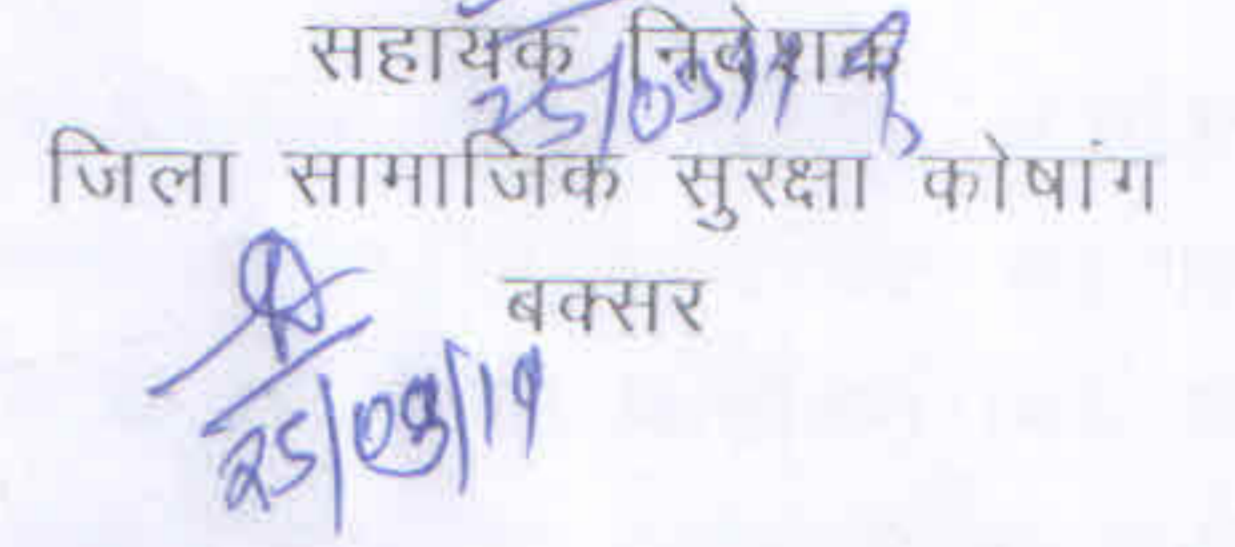 सहायक निदेशक
जिला सामाजिक सुरक्षा कोषांग
बक्सर
25/09/19